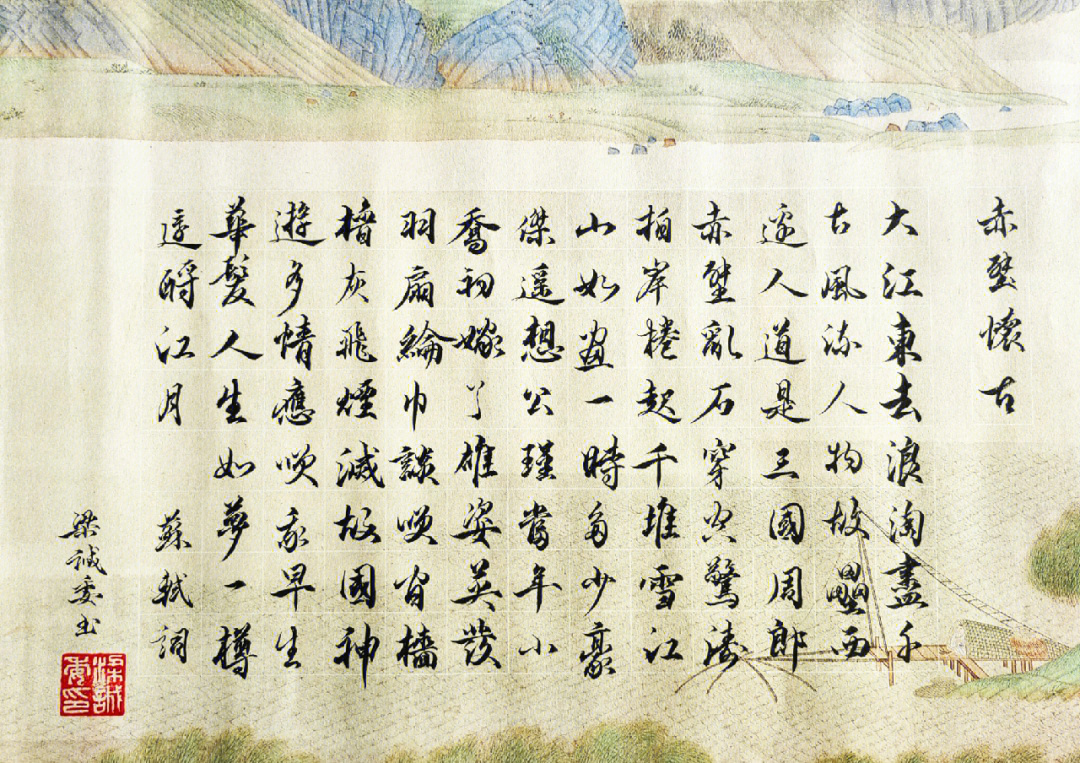 赤壁懷古
大江東去浪淘盡千
古風流人物故壘西
邊人道是三國周郎
赤壁亂石穿空驚濤
拍岸捲起千堆雪江
山如畫一時多少豪
傑遙想公瑾當年小
喬初嫁了雄姿英發
羽扇綸巾談咲間檣
櫓灰飛煙滅故國神
遊多情應咲我早生
華髮人生如夢一樽
還酹江月 蘇軾詞
梁誠委書
梁誠
委印